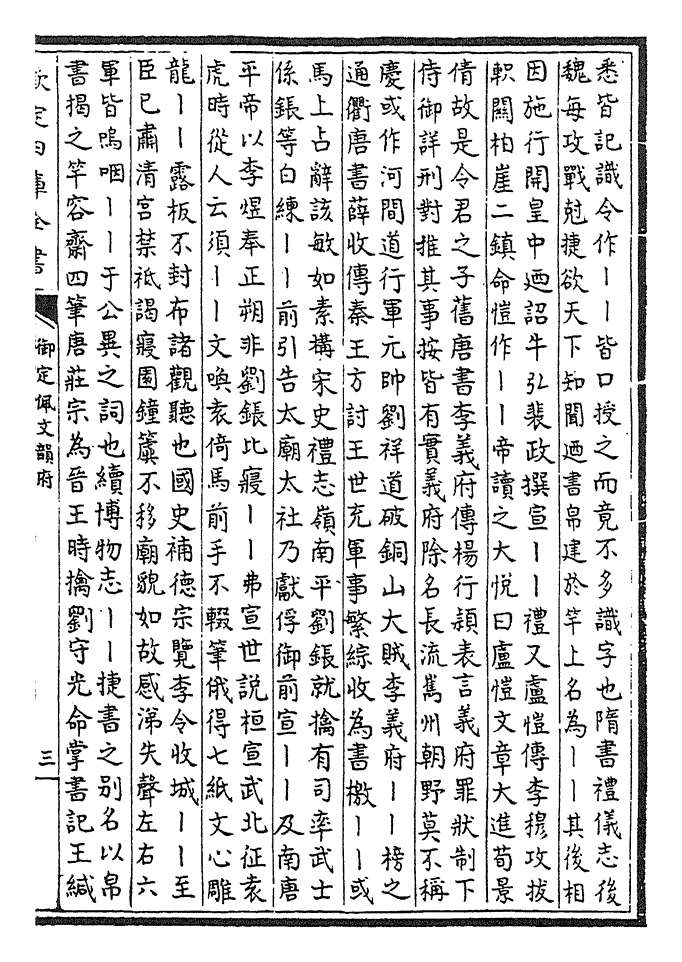 悉皆記識令作丨丨皆口授之而竟不多識字也隋書禮儀志後
魏每攻戰尅捷欲天下知聞廼書帛建於竿上名為丨丨其後相
因施行開皇中廼詔牛引裴政撰宣丨丨禮又盧愷傳李穆攻拔
軹關柏崖二鎮命愷作丨丨帝讀之大悦曰盧愷文章大進荀景
倩故是令君之子舊唐書李義府傳楊行穎表言義府罪狀制下
侍御詳刑對推其事按皆有實義府除名長流嶲州朝野莫不稱
慶或作河間道行軍元帥劉祥道破銅山大賊李義府丨丨榜之
通衢唐書薛收傳秦王方討王世充軍事繁綜收為書檄丨丨或
馬上占辭該敏如素構宋史禮志嶺南平劉鋹就擒有司率武士
係鋹等白練丨丨前引告太廟太社乃獻俘御前宣丨丨及南唐
平帝以李煜奉正朔非劉鋹比寢丨丨弗宣世説桓宣武北征袁
虎時從人云須丨丨文喚袁倚馬前手不輟筆俄得七紙文心雕
龍丨丨露板不封布諸觀聽也國史補德宗覽李令收城丨丨至
臣已肅清宮禁祗謁寢園鐘簴不移廟貌如故感涕失聲左右六
軍皆嗚咽丨丨于公異之詞也續博物志丨丨捷書之别名以帛
書揭之竿容齋四筆唐莊宗為晉王時擒劉守光命掌書記王緘
欽定四庫全書
御定佩文韻府
三